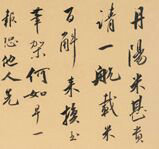 丹陽米甚貴
請一航載米
百斛來換玉
筆架何如早一
報恐他人先